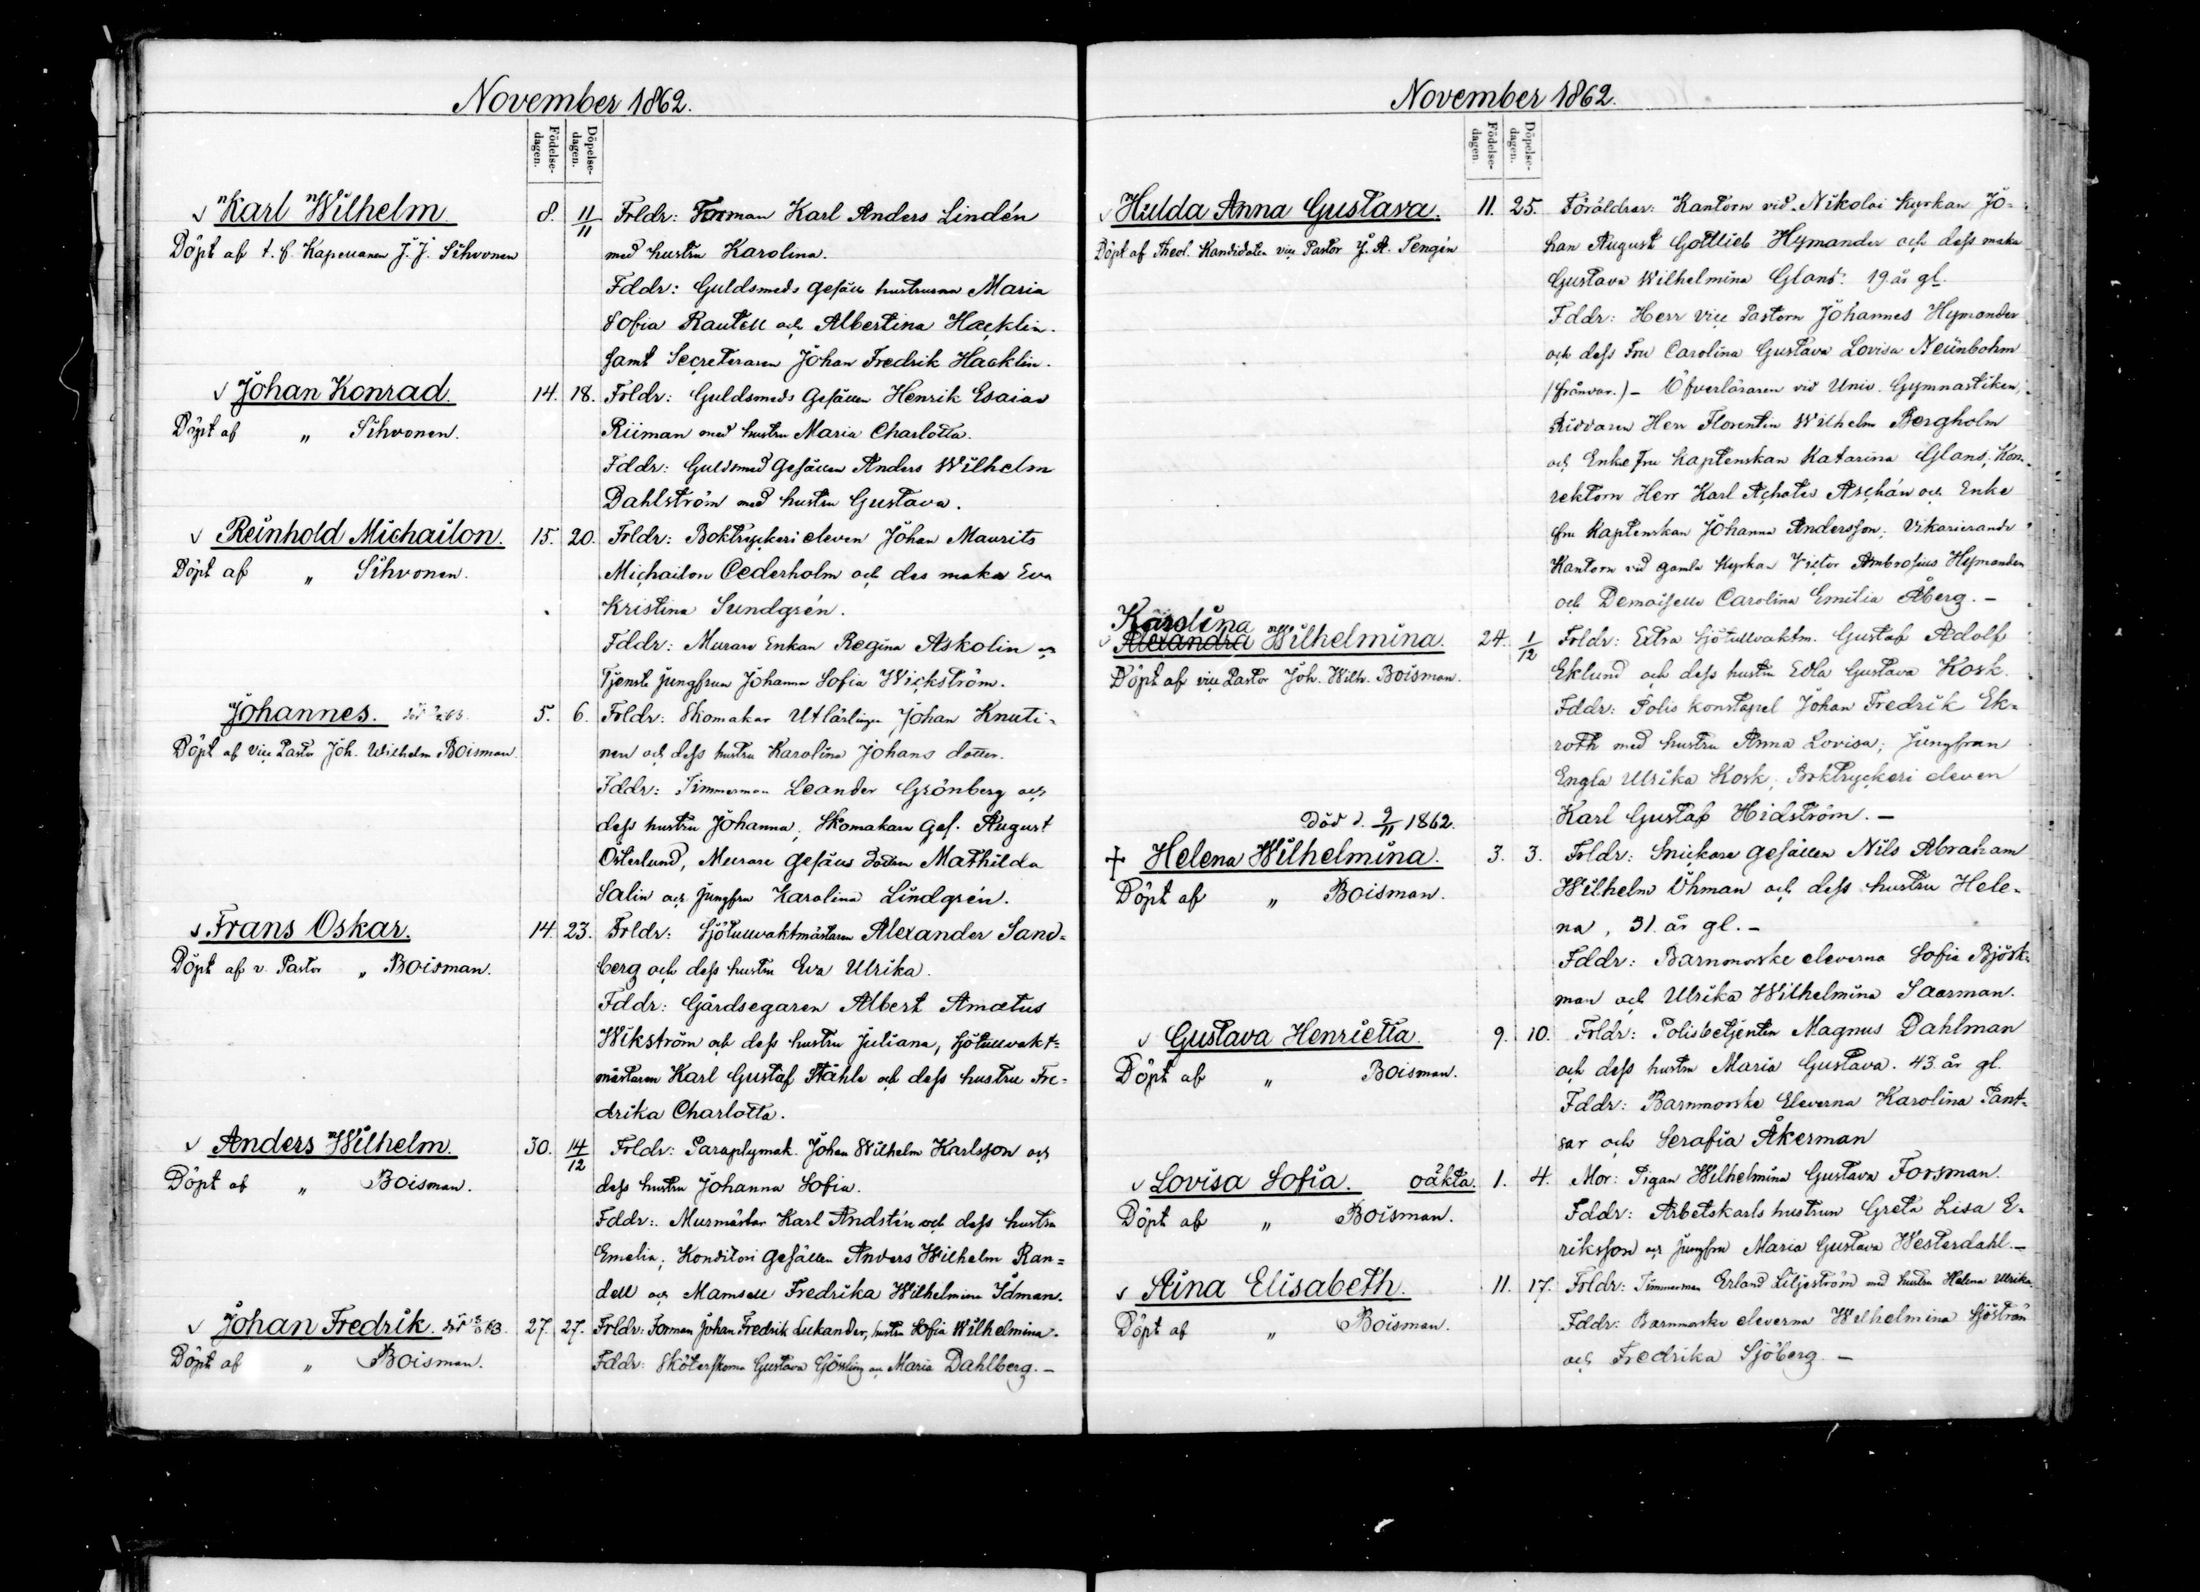 November 1862.
Födelse-
dagen.
Döpelse-
dagen.
Karl Wilhelm 8. 11/11 Frldr: Forman Karl Anders Lindén
Döpt af t. f. Kapellanen J. J. Sihvonen med hustru Karolina.
Fddr: Guldsmeds gesälls hustrurna Maria
Sofia Rautell och Albertina Hacklin.
samt Secreteraren Johan Fredrik Hacklin.
Johan Konrad. 14. 18. Frldr: Guldsmeds Gesällen Henrik Esaias
Döpt af " Sihvonen. Riiman med hustru Maria Charlotta.
Fddr: Guldsmed Gesällen Anders Wilhelm
Dahlström med hustru Gustava.
Reinhold Michailon. 15. 20. Frldr: Boktryckeri eleven Johan Maurits
Döpt af " Sihvonen. Michailon Cederholm och des maka Eva
Kristina Sundgrén.
Fddr: Murare Enkan Regina Askolin och
Tjenste jungfrun Johanna Sofia Wickström.
Johannes. död 63. 5. 6. Frldr: Skomakar Utlärlingen Johan Knuti-
Döpt af Vice Pastor Joh. Wilhelm Boisman. nen och dess hustru Karolina Johans dotter.
Fddr: Timmerman Leander Grönberg och
dess hustru Johanna, Skomakare Ges. August
Österlund, Murare gesälls Mathilda
Salin och jungfru Karolina Lindgrén.
Frans Oskar. 14. 23. Frldr: Sjötullvaktmästaren Alexander Sand-
Döpt af v. Pastor " Boisman. berg och dess hustru Eva Ulrika.
Fddr: Gårdsegaren Albert Amatus
Wikström och dess hustru Juliana, Sjötullvakt-
mästaren Karl Gustaf Ståhle och dess hustru Fre-
drika Charlotta.
Anders Wilhelm. 30. 14/12 Frldr: Paraplymak. Johan Wilhelm Karlsson och
Döpt af " Boisman. dess hustru Johanna Sofia.
Fddr: Murmästar Karl Andstén och dess hustru
Emelia; Konditori gesällen Anders Wilhelm Ran-
dell och Mamsell Fredrika Wilhelmina Idman.
Johan Fredrik. död 63. 27. 27. Frldr: Forman Johan Fredrik Lukander, hustru Sofia Wilhelmina.
Döpt af " Boisman. Fddr: Sköterskorna Gustava Gössling och Maria Dahlberg. -
November 1862.
Födelse-
dagen.
Döpelse-
dagen.
Hulda Anna Gustava. 11. 25. Föräldrar: Kantorn vid Nikolai kyrkan Jo-
Döpt af Theol. Kandidaten vice Pastor J. A. Tengén han August Gottlieb Hymander och dess maka
Gustava Wilhelmina Glans: 19 år gl.
Fddr: Herr vice Pastorn Johannes Hymander
och dess Fru Carolina Gustava Lovisa Neünbohm
(frånvar.) - Öfverläraren vid Univ. Gymnastiken,
Riddaren Herr Florentin Wilhelm Bergholm
och Enke Fru Kaptenskan Katarina Glans; Kon-
rektorn Herr Karl Achates Aschán och Enke
fru Kaptenskan Johanna Andersson; Vikarierande
Kantorn vid gamla kyrkan Victor Ambrosius Hymander
och Demoiselle Carolina Emilia Åberg. -
Karolina
Alexandra Wilhelmina. 24. 1/12 Frldr: Extra Sjötullvaktm. Gustaf Adolf
Döpt af vice Pastor Joh. Wilh. Boisman. Eklund och dess hustru Edla Gustava Kosk.
Fddr: Polis konstapel Johan Fredrik Ek-
roth med hustru Anna Lovisa; Jungfrun
Engla Ulrika Kosk; Boktryckeri eleven
Karl Gustaf Hidström. -
Död d. 9/11 1862.
Helena Wilhelmina. 3. 3. Frldr: Snickare Gesällen Nils Abraham
Döpt af " Boisman. Wilhelm Öhman och dess hustru Hele-
na, 31. år gl. -
Fddr: Barnmorske eleverna Sofia Björk-
man och Ulrika Wilhelmina Saarman.
Gustava Henrietta. 9. 10. Frldr: Polisbetjenten Magnus Dahlman
Döpt af " Boisman. och dess hustru Maria Gustava. 43 år gl.
Fddr: Barnmorske Eleverna Karolina Pant-
sar och Serafia Åkerman
Lovisa Sofia. oäkta. 1. 4. Mor: Pigan Wilhelmina Gustava Forsman.
Döpt af " Boisman. Fddr: Arbetskarls hustrun Greta Lisa E-
riksson och jungfru Maria Gustava Westerdahl. -
Aina Elisabeth. 11. 17. Frldr: Timmerman Erland Liljeström med hustru Helena Ulrika.
Döpt af " Boisman. Fddr: Barnmorske eleverna Wilhelmina Sjöström
och Fredrika Sjöberg. -